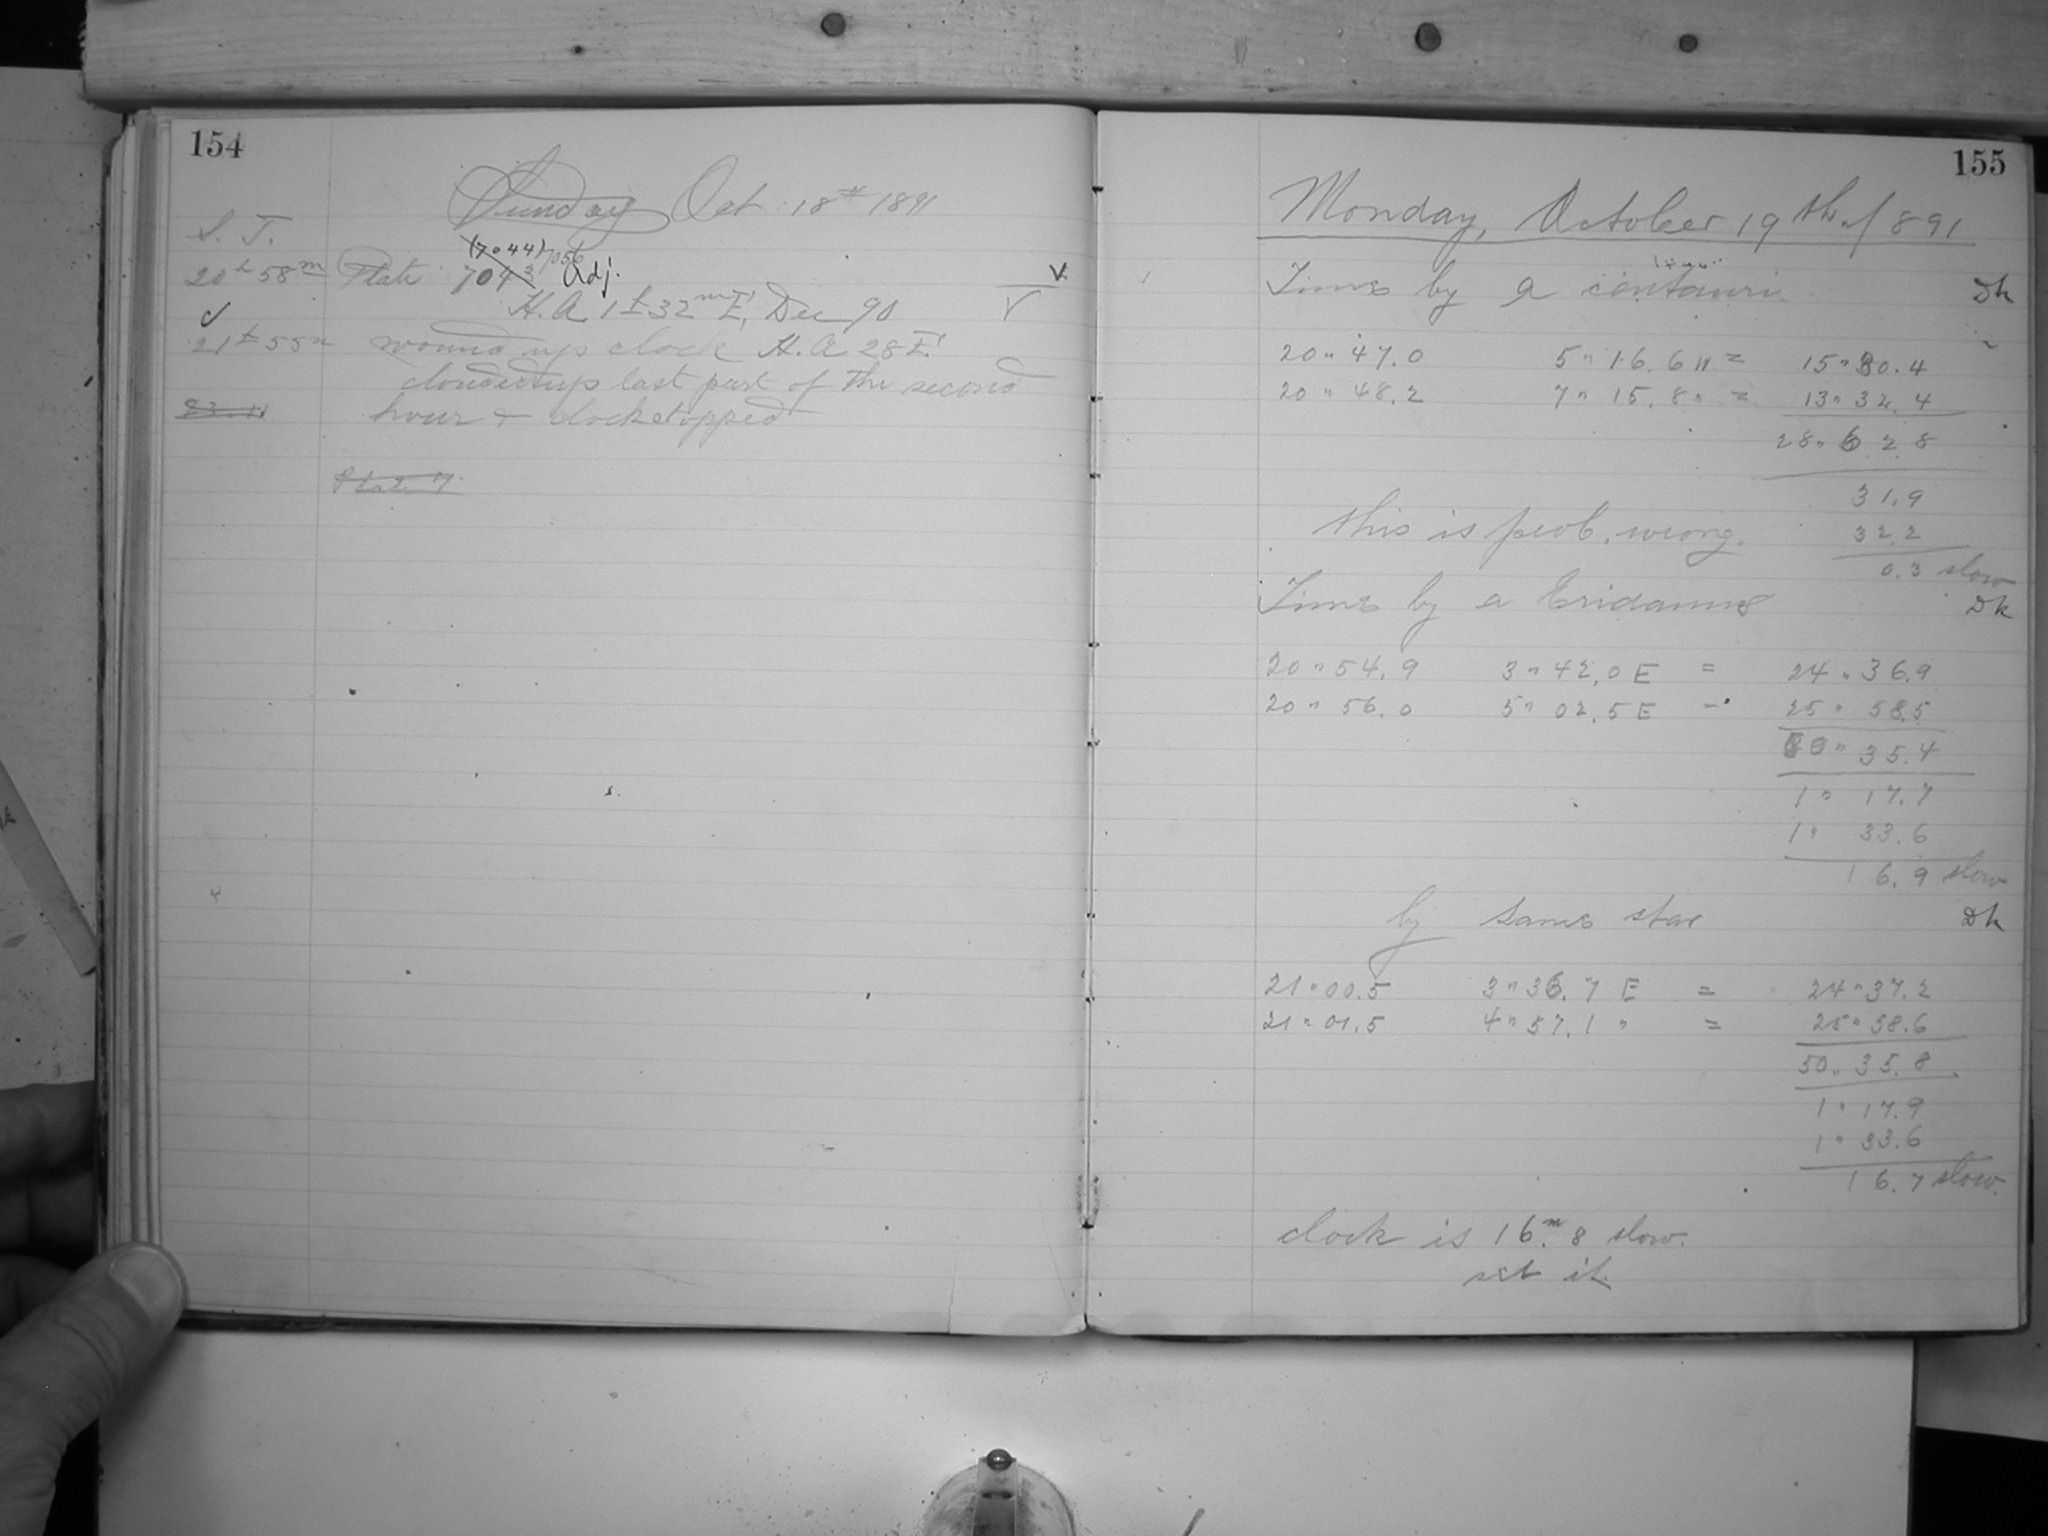 154
Sunday Oct 18th 1891
S. T.
(7044) 7056
20h 58m Plate 7043 Adj. V
H.A. 1h 32m E, Dec 90 V
21h 55m wound up clock H.A 28 E
clouded up last part of the second
hour & clock stopped
Plate 7
155
Monday, October 19th, 1891
Time by a centauri Dk
20 " 47.0 5 " 16.6 " = 15 " 30.4
20 " 48.2 7 " 15.8 " = 13 " 32.4
28 " 62 8
31.9
this is prob. wrong. 32.2
0.3 slow
Time by a Eridanus Dk
20 " 54.9 3 " 42.0 E = 24 " 36.9
20 " 56.0 5 " 02.5 E = 25 " 58.5
50 " 35.4
1 " 17.7
1 " 33.6
16.9 slow
by same star Dk
21 " 00.5 3 " 36.7 E = 24 " 37.2
21 " 01.5 4 " 57.1 " = 25 " 58.6
50 " 35.8
1 " 17.9
1 " 33.6
16.7 slow.
clock is 16m.8 slow.
set it.